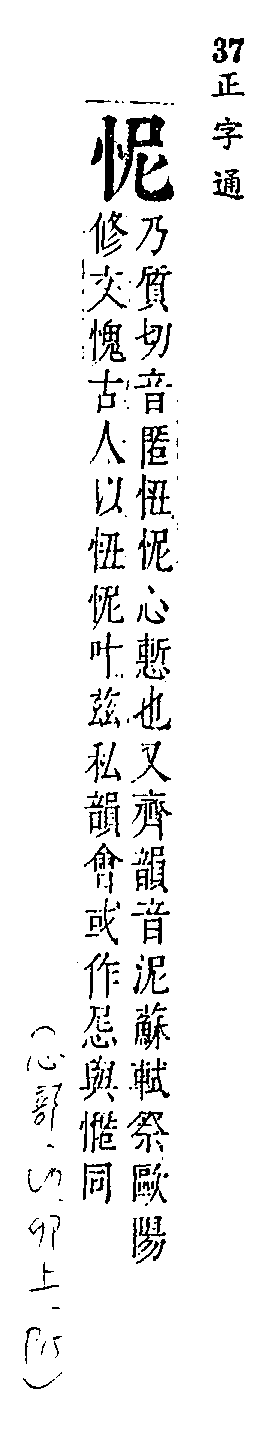 37正字通
怩
乃質切音匿忸怩心慙也又齊韻音泥蘇軾祭歐陽
修文愧古人以忸怩叶茲私韻會或作與同
（心部、卯上、P15）